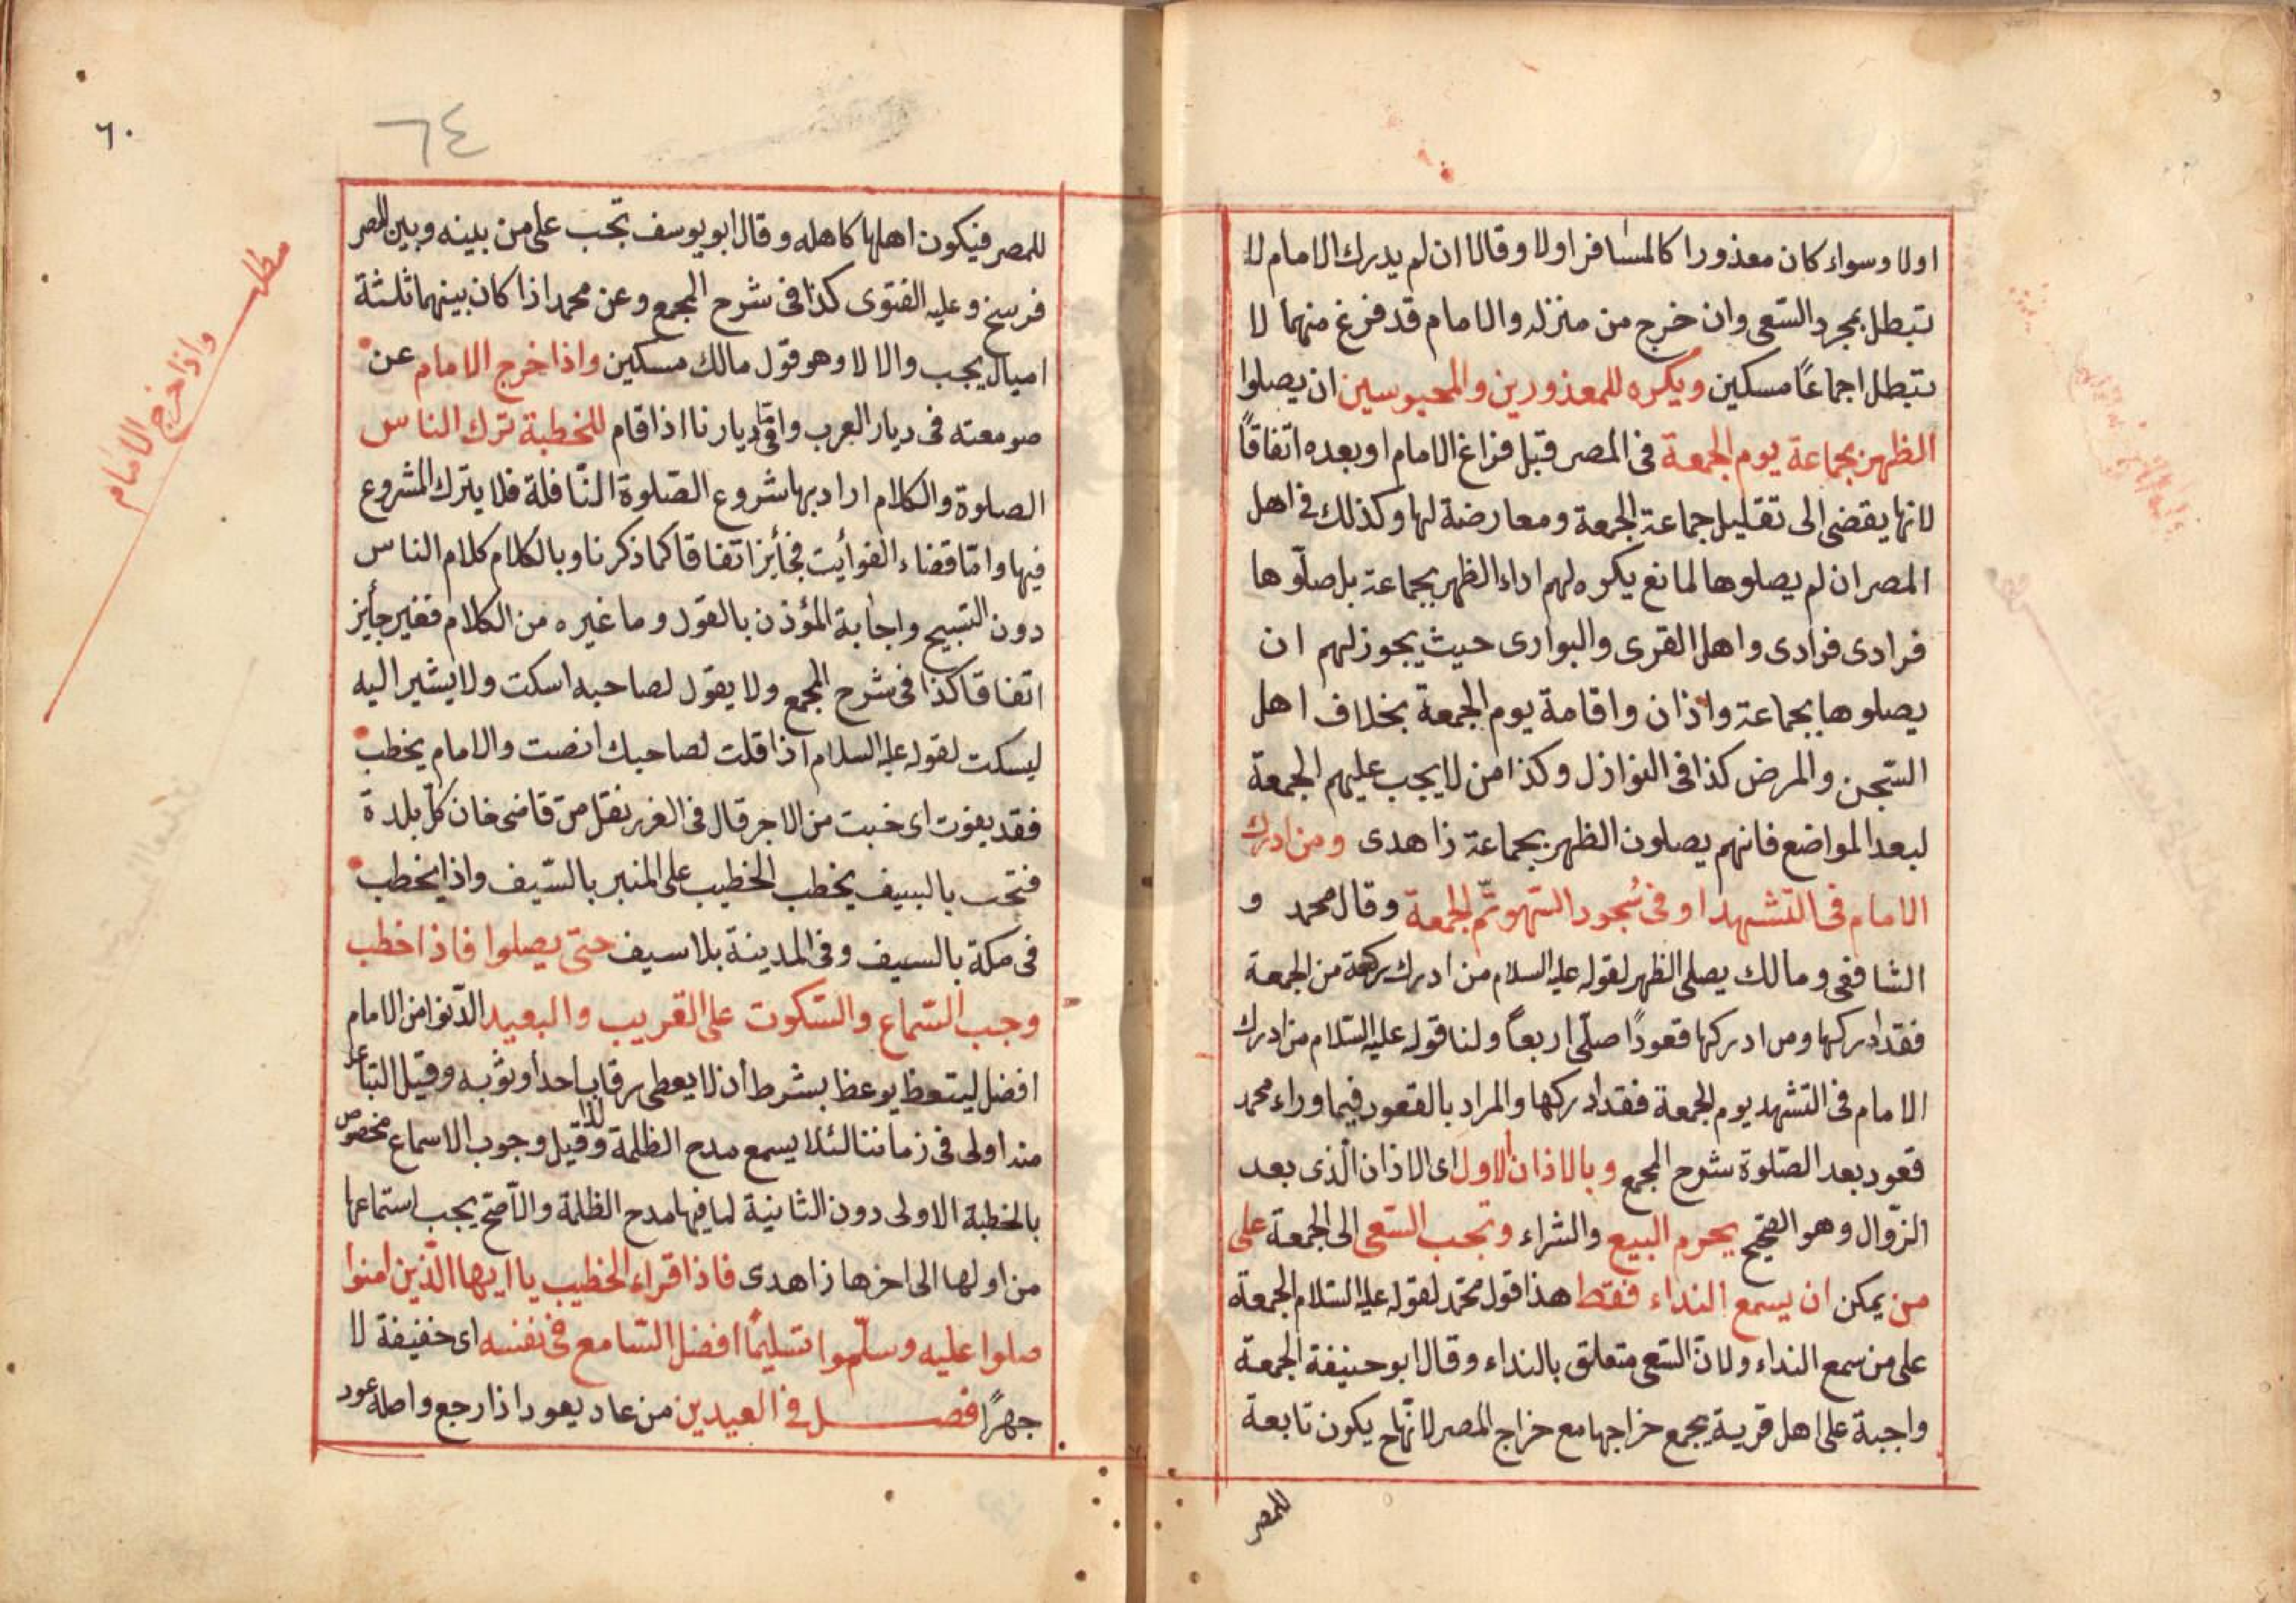 اولا وسواء كان معذورا كالمسافر اولا وقالا ان لم يدرك الامام لا
تبطل بمجرد السّعى وان خرج من منزله والامام قد فرغ منهما لا
تبطل اجماعًا مسكين ويكره للمعذورين والمحبوسين ان يصلوا
الظهر بجماعة يوم الجمعة فى المصر قبل فراغ الامام او بعده اتفاقًا
لانها يفضى الى تقليل جماعة الجمعة ومعارضة لها وكذلك فى اهل
المصر ان لم يصلوها لمانع يكره لهم اداء الظهر بجماعة بل صلّوها
فرادى فرادى واهل القرى والبوارى حيث يجوز لهم ان
يصلوها بجماعة واذان واقامة يوم الجمعة بخلاف اهل
السّجن والمرض كذا فى النوازل وكذا من لا يجب عليهم الجمعة
لبعد المواضع فانهم يصلون الظهر بجماعة زاهدى ومن ادرك
الامام فى التشهد او فى سُجود السّهو تمّ الجمعة وقال محمد و
الشافعى ومالك يصلى الظهر لقوله عليه السلام من ادرك ركعة من الجمعة
فقد ادركها ومن ادركها قعودًا صلّى اربعاً ولنا قوله عليه السّلام من ادرك
الامام فى التشهد يوم الجمعة فقد ادركها والمراد بالقعود فيما وراه محمد
قعود بعد الصّلوة شرح المجمع وبالاذان الاول اى الاذان الّذى بعد
الزّوال وهو الصّحيح يحرم البيع والشراء وتجب السّعى الى الجمعة على
من يمكن ان يسمع النداء فقط هذا قول محمّد لقوله عليه السّلام الجمعة
على من سمع النداء ولانّ السّعى متعلق بالنداء وقال ابو حنيفة الجمعة
واجبة على اهل قرية يجمع خراجها مع خراج المصر لانّها ح يكون تابعة
للمصر
٦٤
٦٠
للمصر فيكون اهلها كاهله وقال ابو يوسف تجب على من بينه وبين المصر
فرسخ وعليه الفتوى كذا فى شرح المجمع وعن محمد اذا كان بينهما ثلثة
اميال يجب والا لا وهو قول مالك مسكين واذا خرج الامام عن
صومعته فى ديار العرب وامّا فى ديارنا اذا قام للخطبة ترك الناس
الصلوة والكلام اراد بها شروع الصّلوة النّافلة فلا يترك المشروع
فيها وامّا قضاء الفوأيت فجأيز اتفاقا كما ذكرنا وبالكلام كلام الناس
دون التسبيح واجابة المؤذن بالقول وما غيره من الكلام فغير جأيز
اتفاقا كذا فى شرح المجمع ولا يقول لصاحبه اسكت ولا يشير اليه
ليسكت لقوله عليه السلام اذا قلت لصاحبك انصت والامام يخطب
فقد يغوت اى خبت من الاجر قال فى الغرر نقل من قاضى خان كلّ بلدة
فتحت بالسيف يخطب الخطيب على المنبر بالسّيف واذا يخطب
فى مكة بالسيف وفى المدينة بلا سيف حتّى يصلوا فاذا خطب
وجب السّماع والسّكوت على القريب والبعيد الدّنوا من الامام
افضل ليتعظ يوعظ بشرط أن لا يعطى رقاب احد او ثوبه وقيل التباعد
منه اولى فى زماننا لئلا يسمع مدح الظلمة ولذا قيل وجوب الاسماع مخصوص
بالخطبة الاولى دون الثانية لما فيها مدح الظلمة والأصّح يجب استماعها
من اولها الى اخرها زاهدى فاذا قراء الخطيب يا ايها الّذين امنوا
صلوا عليه وسلّموا تسليمًا افضل السّامع فى نفسه اى خفيفة لا
جهرًا فصل فى العيدين من عاد يعود اذا رجع واصله عود
مطل
واذا خرج الامام